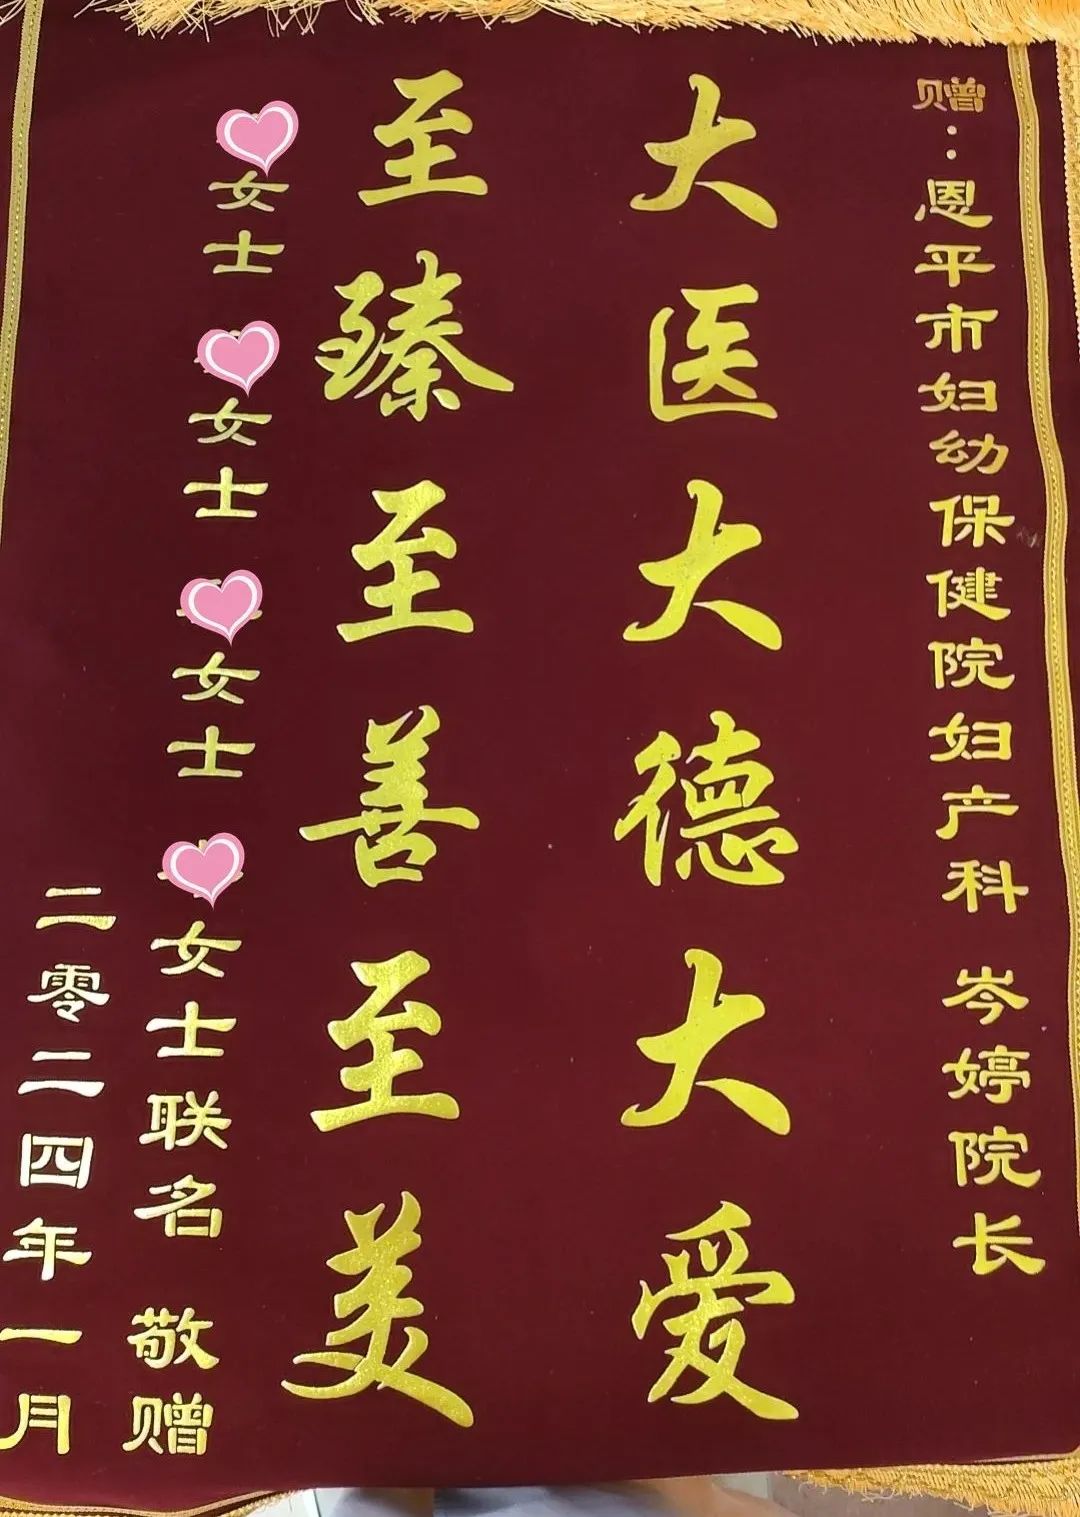 赠：恩平市妇幼保健院妇产科 岑婷院长
大医大德大爱
至臻至善至美
女士 女士 女士 女士联名 敬赠
二零二四年一月